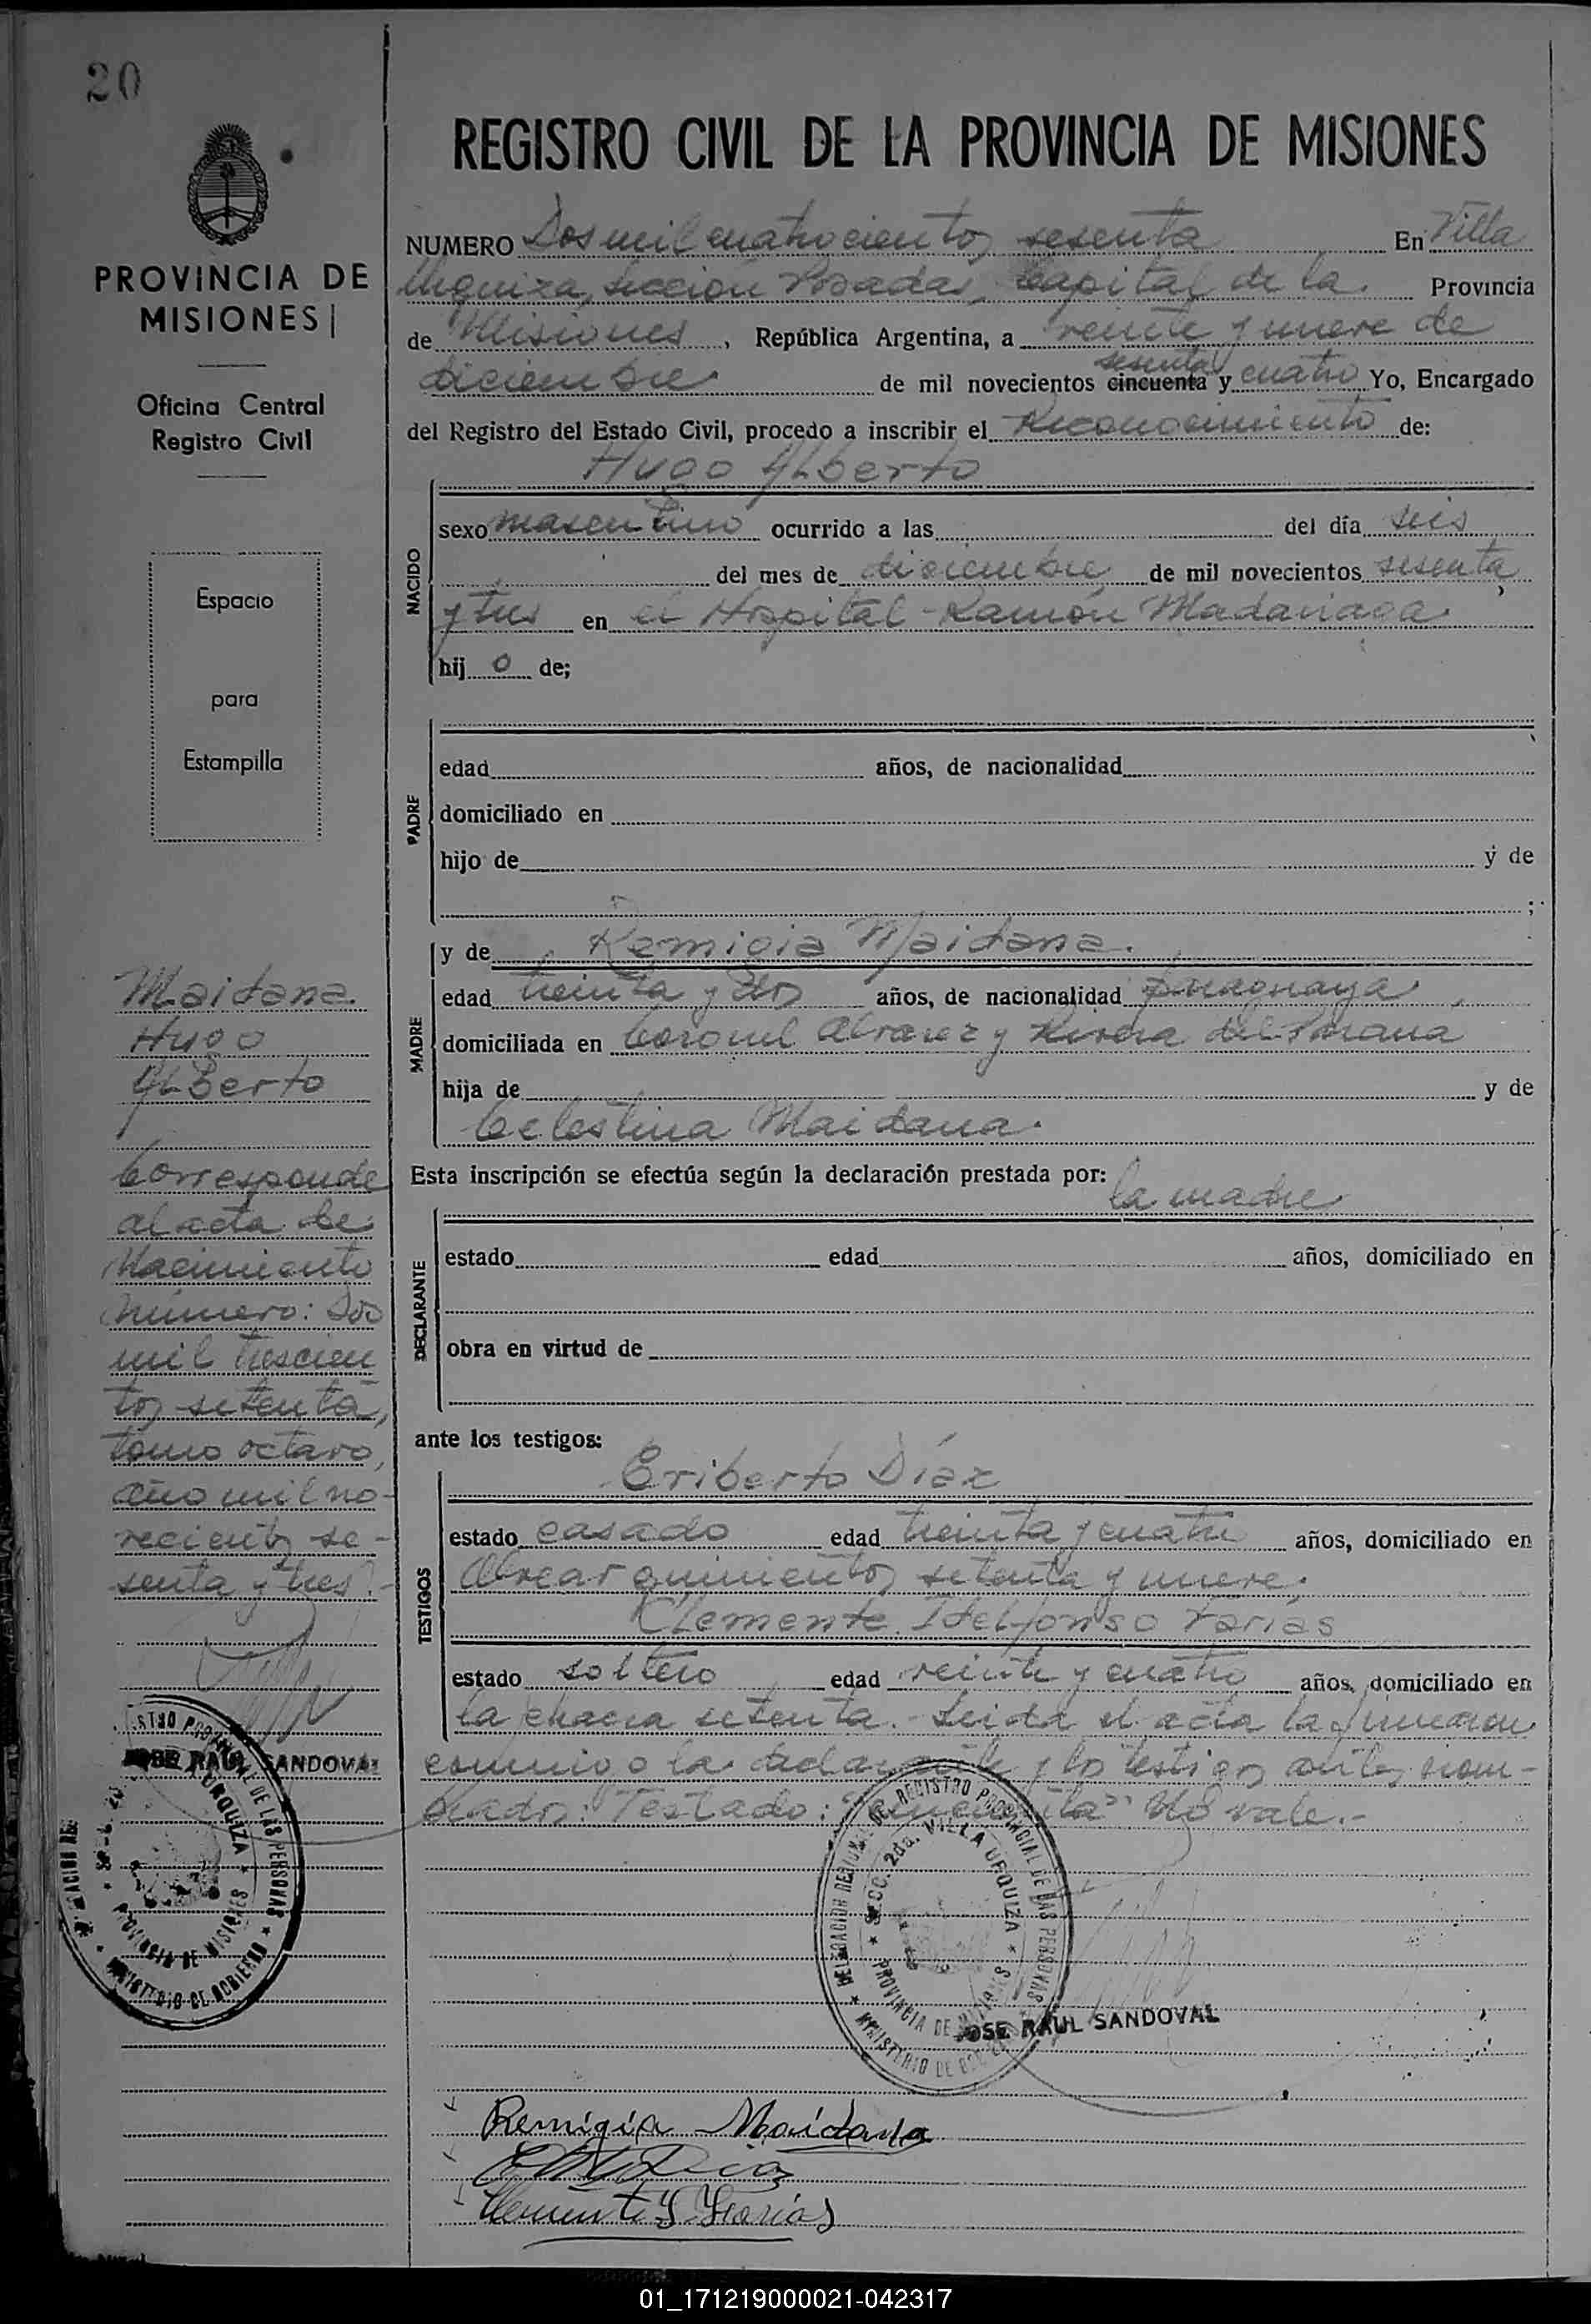 20
PROVINCIA DE
MISIONES
Oficina Central
Registro Civil
Espacio
para
Estampilla
Maidana
Hugo
Alberto
Corresponde
al acta de
Nacimiento
número: Dos
mil trescien
tos setenta,
tomo octavo,
año mil no-
vecientos se-
senta y tres.-
JOSE RAUL SANDOVAL
REGISTRO CIVIL DE LA PROVINCIA DE MISIONES
NUMERO Dos mil cuatrocientos sesenta En Villa
Urquiza, Sección Posadas, Capital de la Provincia
de Misiones, República Argentina, a veinte y nueve de
sesenta
diciembre de mil novecientos cincuenta y cuatro Yo, Encargado
del Registro del Estado Civil, procedo a inscribir el Reconocimiento de:
Hugo Alberto
NACIDO
sexo masculino ocurrido a las del día seis
del mes de diciembre de mil novecientos sesenta
y tres en el Hospital Ramón Madariaga
hij o de;
PADRE
edad años, de nacionalidad
domiciliado en
hijo de y de
;
MADRE
y de Remigia Maidana.
edad treinta y dos años, de nacionalidad paraguaya,
domiciliada en Coronel Alvarez y Rivera del Paraná
hija de y de
Celestina Maidana.
Esta inscripción se efectúa según la declaración prestada por:
la madre
DECLARANTE
estado edad años, domiciliado en
obra en virtud de
ante los testigos:
TESTIGOS
Eriberto Díaz
estado casado edad treinta y cuatro años, domiciliado en
Alvear quinientos setenta y nueve;
Clemente Idelfonso Farias
estado soltero edad veinte y cuatro años, domiciliado en
la chacra setenta. Leida el acta la firmaron
conmigo la declarante y los testigos antes nom-
brados: Testado: "cincuenta" No vale.-
DELEGACION REGIONAL DEL REGISTRO PROVINCIAL DE LAS PERSONAS
SECC. 2da. VILLA URQUIZA
PROVINCIA DE MISIONES
MINISTERIO DE GOBIERNO
JOSE RAUL SANDOVAL
Remigia Maidana
Clemente Y Farias
01_171219000021-042317